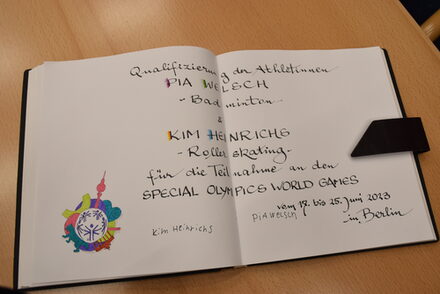 Qualifizierung der Athletinnen
PIA WELSCH
- Badminton
&
KIM HEINRICHS
- Roller skating -
für die Teilnahme an den
SPECIAL OLYMPICS WORLD GAMES
vom 17. bis 25. Juni 2023
in Berlin
Kim Heinrichs
PiA Welsch